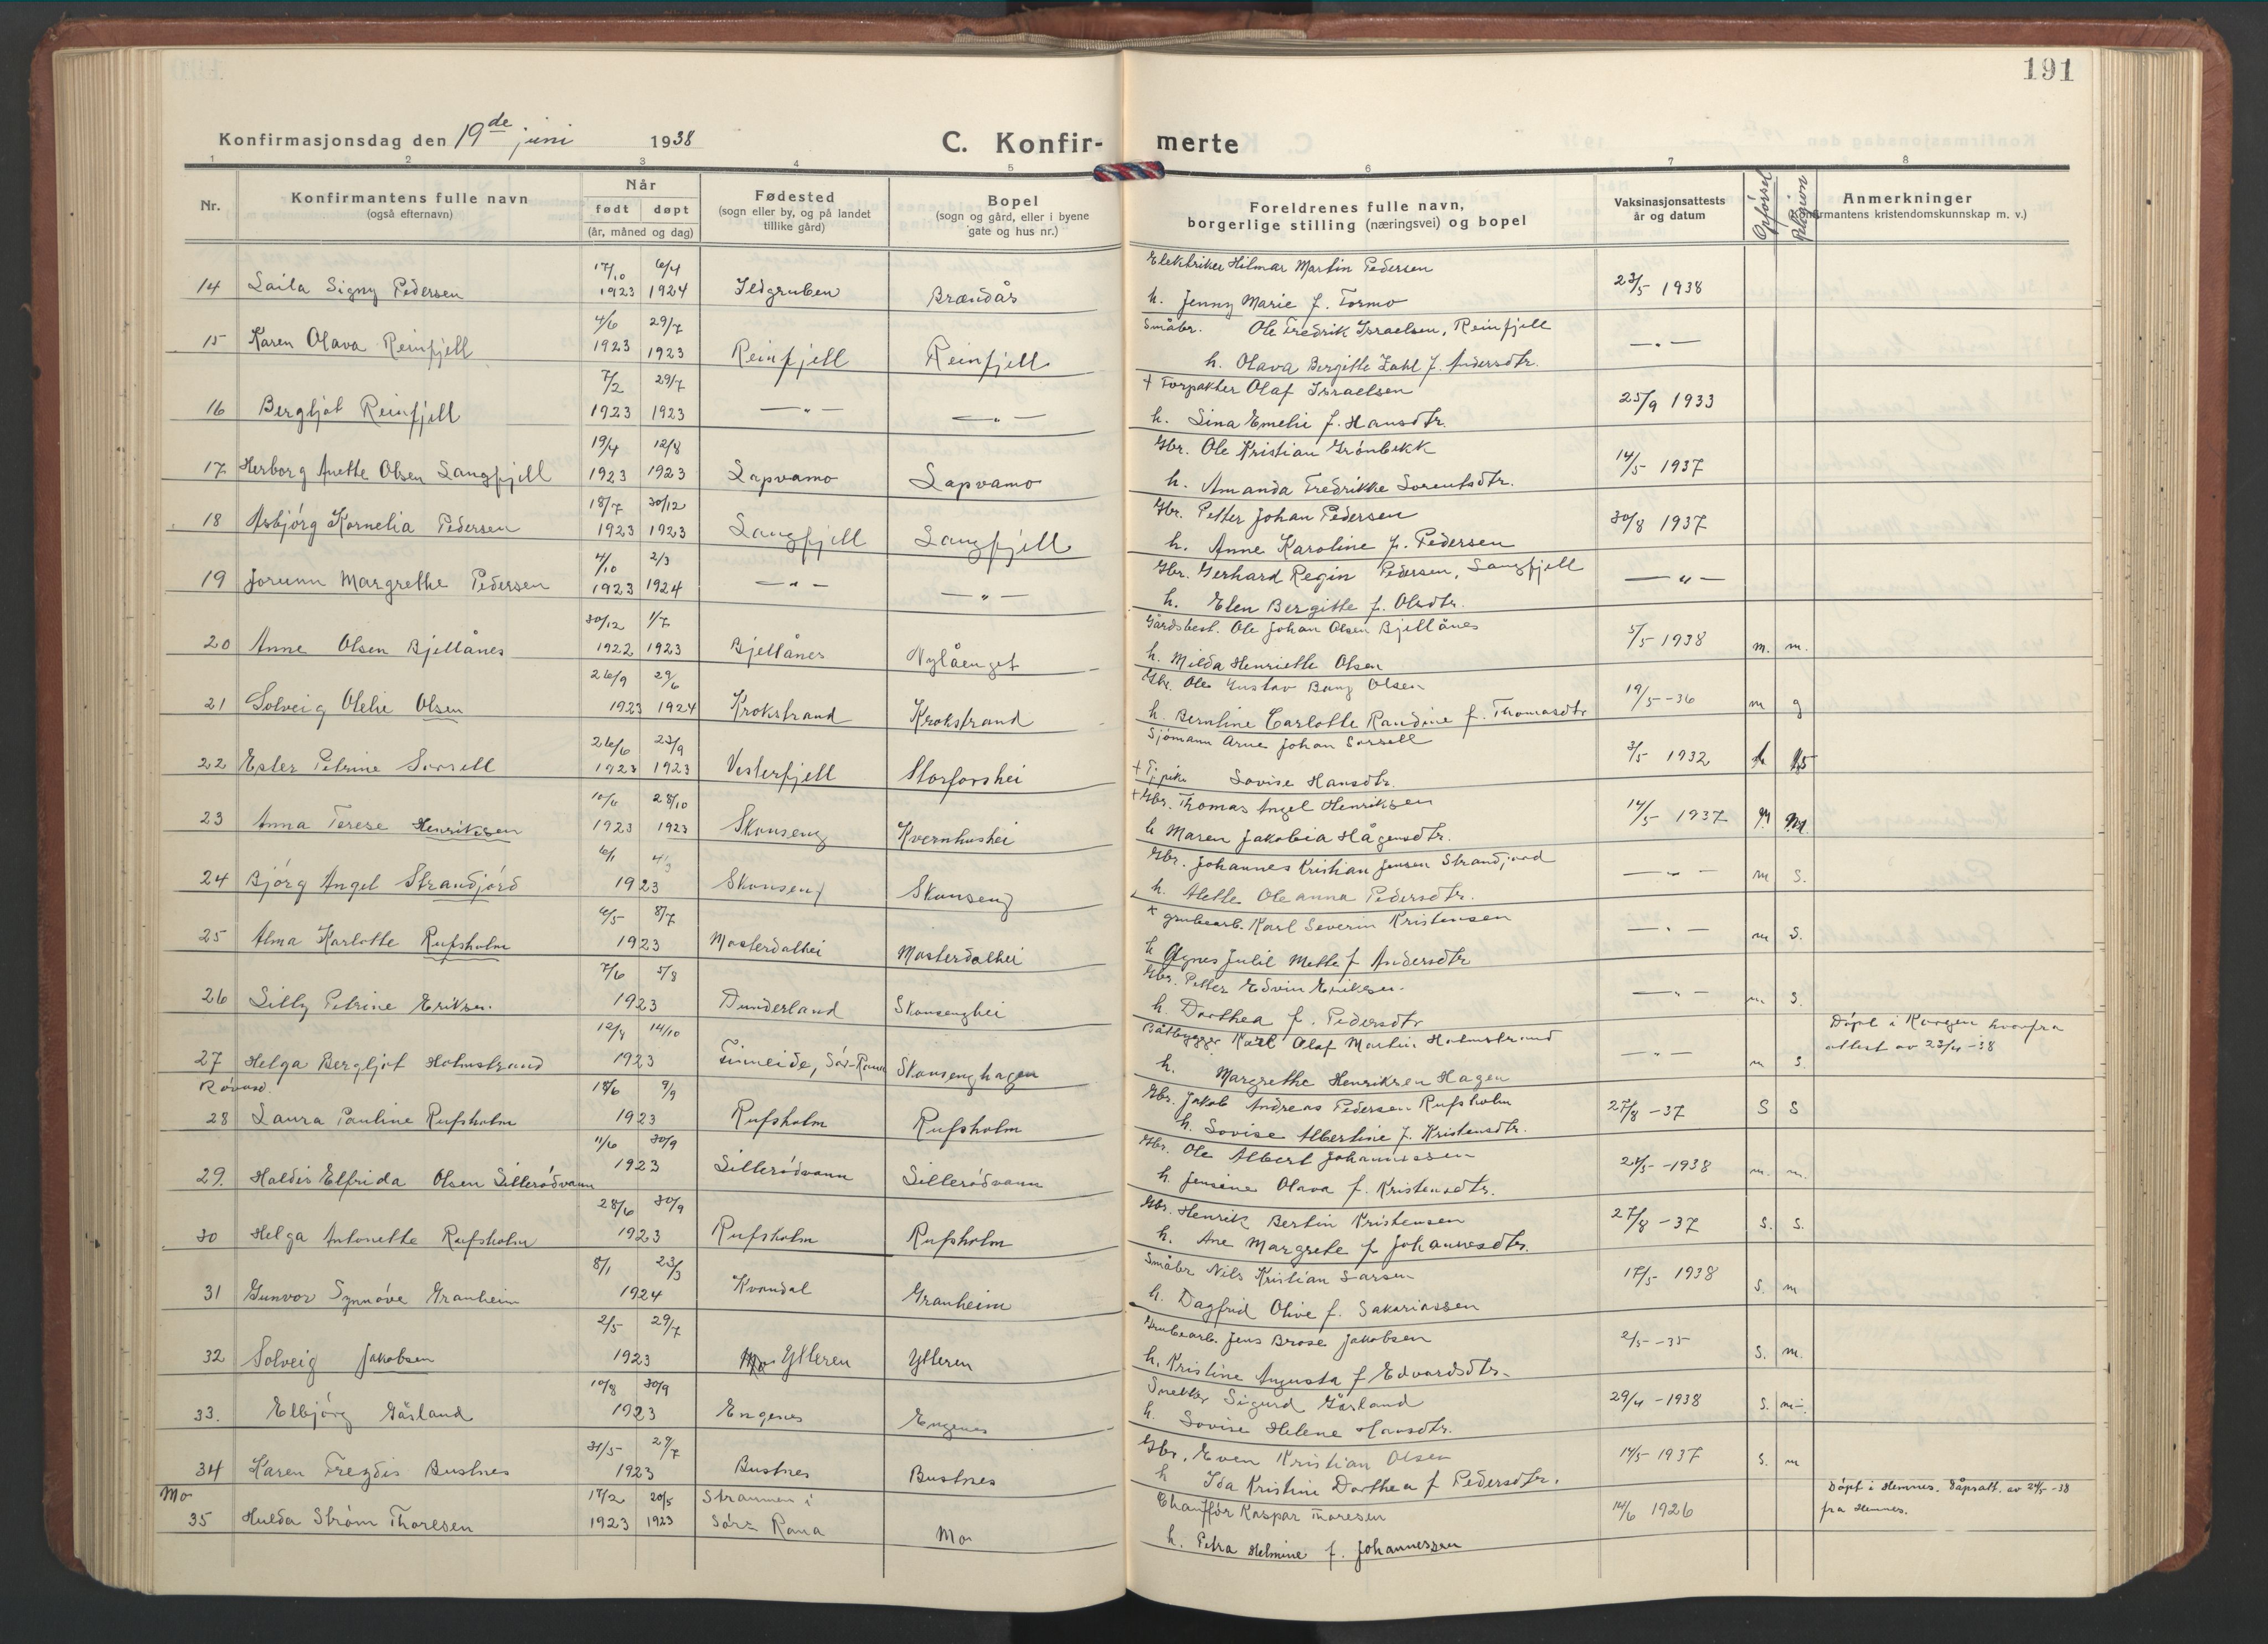 191
Konfirmasjonsdag den 19de juni 1938
C. Konfir- merte
1 2 3 4 5 6 7 8
Nr.
Konfirmantens fulle navn
(også efternavn)
Når
født døpt
(år, måned og dag)
Fødested
(sogn eller by, og på landet
tillike gård)
Bopel
(sogn og gård, eller i byene
gate og hus nr.)
Foreldrenes fulle navn,
borgerlige stilling (næringsvei) og bopel
Vaksinasjonsattests
år og datum
Opførsel
Religion
Anmerkninger
(Konfirmantens kristendomskunnskap m. v.)
17/10 6/4 Elektriker Hilmar Martin Pedersen
14 Laila Signy Pedersen 1923 1924 Ildgruben Brændås h. Jenny Marie f. Tormo 23/5 1938
4/6 29/7 Småbr. Ole Fredrik Israelsen, Reinfjell
15 Karen Olava Reinfjell 1923 1923 Reinfjell Reinfjell h. Olava Bergitte Zahl f. Andersdtr. — " —
7/2 29/7 + Forpakter Olaf Israelsen
16 Bergljot Reinfjell 1923 1923 — " — — " — h. Lina Emelie f. Hansdtr. 25/9 1933
19/4 12/8 Gbr. Ole Kristian Grønbekk
17. Herborg Anette Olsen Langfjell 1923 1923 Lapvamo Lapvamo h. Amanda Fredrikke Lorentsdtr. 14/5 1937
18/7 30/12 Gbr. Petter Johan Pedersen
18 Asbjørg Kornelia Pedersen 1923 1923 Langfjell Langfjell h. Anne Karoline f. Pedersen 30/8 1937
4/10 2/3 Gbr. Gerhard Regin Pedersen, Langfjell
19 Jorunn Margrethe Pedersen 1923 1924 — " — — " — h. Elen Bergitte f. Olsdtr. — " —
30/12 1/7 Gårdsbest. Ole Johan Olsen Bjellånes
20 Anne Olsen Bjellånes 1922 1923 Bjellånes Nylåenget h. Milda Henriette Olsen 5/5 1938 m. m.
26/9 29/6 Gbr. Ole Gustav Bang Olsen
21 Solveig Oletie Olsen 1923 1924 Krokstrand Krokstrand h. Berntine Carlotte Randine f. Thomasdtr 19/5 -36 m g
26/6 23/9 Sjømann Arne Johan Sorsell
22 Ester Petrine Sorsell 1923 1923 Vesterfjell Storforshei + Lovise Hansdtr. 3/5 1932
10/6 28/10 + Gbr. Thomas Angel Henriksen
23 Anna Terese Henriksen 1923 1923 Skonseng Kvernhushei h Maren Jakobia Hågensdtr. 14/5 1937 M M
6/1 Gbr. Johannes Kristian Jensen Strandjord
24 Bjørg Angel Strandjord 1923 Skonseng Skonseng h. Mette Oleanna Pedersdtr. — " — m s.
6/5 8/7 grubearb. Karl Severin Kristensen
25 Alma Karlotte Rufsholm 1923 Mosterdalhei Mosterdalhei h Agnes Julie Mette f Andersdtr — " — m s.
7/6 5/8 Gbr. Petter Edvin Eriksen.
26 Lilly Petrine Eriksen. 1923 Dunderland Skonsenghei h. Dorthea f. Pedersdtr — " — m s.
14/10 Båtbygger Karl Olaf Martin Holmstrand Døpt i Korgen hvorfra
27 Helga Bergljot Holmstrand 1923 Finneide, Sør-Rana Skonsenghagen h. Margrethe Henriksen Hagen — " — m s. attest av 23/4 -38
18/6 9/9 Gbr. Jakob Andreas Pedersen Rufsholm
28 Laura Pauline Rufsholm 1923 Rufsholm Rufsholm h. Lovise Albertine f. Kristensdtr. 27/8 -37 S S
11/6 30/9 Gbr. Ole Albert Johannessen
29. Haldis Elfrida Olsen Litlerødvann 1923 Litlerødvann Litlerødvann h. Jensine Olava f. Kristensdtr. 28/5 -1938 m. m.
28/6 30/9 Gbr. Henrik Bertin Kristensen
30 Helga Antonette Rufsholm 1923 Rufsholm Rufsholm h. Ane Margrete f Johannesdtr. 27/8 -37 s. s.
8/1 23/3 Småbr Nils Kristian Larsen
31 Gunvor Synnøve Granheim 1924 Kvandal Granheim h. Dagfrid Olive f. Sakariassen 17/5 1938 s. m
2/5 29/7 Grubearb. Jens Brose Jakobsen
32 Solveig Jakobsen 1923 Mo Ytteren Ytteren h. Kristine Augusta f Edvardsdtr. 2/5 -35 s. m.
10/8 30/9 Snekker Sigurd Gårland
33. Elbjørg Gårland 1923 Engenes Engenes h. Lovise Helene Hansdtr. 29/4 -1938 s. m-.
31/5 29/7 Gbr. Even Kristian Olsen
34 Karen Freydis Bustnes 1923 Bustnes Bustnes h Ida Kristine Dorthea f Pedersdtr. 14/5 1937 s. m
Mo 17/2 20/5 Straumen i Chauffør Kaspar Thoresen Døpt i Hemnes. Dåpsatt. av 24/5 -38
35 Hulda Strøm Thoresen 1923 1923 Sør-Rana Mo h. Petra Helmine f. Johannessen 14/6 1926 fra Hemnes.